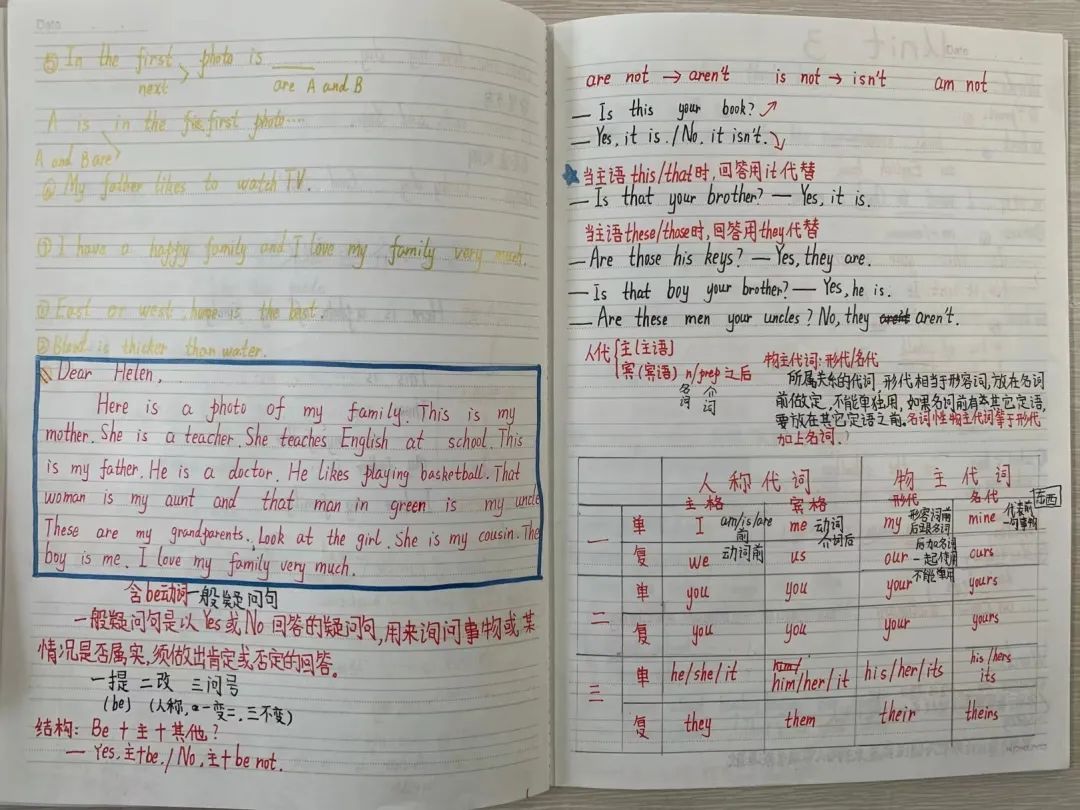 Date
⑤ In the first photo is ____
next
are A and B
A is in the first photo....
A and B are
⑥ My father likes to watch TV.
① I have a happy family and I love my family very much.
① East or west, home is the best.
② Blood is thicker than water.
Dear Helen,
Here is a photo of my family. This is my
mother. She is a teacher. She teaches English at school. This
is my father. He is a doctor. He likes playing basketball. That
woman is my aunt and that man in green is my uncle
These are my grandparents. Look at the girl. She is my cousin. The
boy is me. I love my family very much.
含be动词一般疑问句
一般疑问句是以 Yes 或 No 回答的疑问句,用来询问事物或某
情况是否属实,须做出肯定或否定的回答。
一提 二改 三问号
(be) (人称, 一变二, 三不变)
结构: Be + 主 + 其他?
— Yes, 主+be. / No, 主+be not.
Date
Unit 3
are not → aren't is not → isn't am not
— Is this your book?
— Yes, it is. / No, it isn't.
当主语 this/that 时,回答用 it 代替
— Is that your brother? — Yes, it is.
当主语these/those时,回答用they代替
— Are those his keys? — Yes, they are.
— Is that boy your brother? — Yes, he is.
— Are these men your uncles? No, they aren't.
人代 主(主语)
宾(宾语) n/prep 之后
名词 介词
物主代词: 形代/名代
所属关系的代词,形代相当于形容词,放在名词
前做定,不能单独用,如果名词前有其它定语,
要放在其它定语之前。名词性物主代词等于形代
加上名词。
人称代词 物主代词
主格 宾格 形代 名代 东西
一 单 I am/is/are前 me 动词介词后 my 形容词前后跟名词 mine 代表前一句事物
复 we 动词前 us our 后加名词一起使用 ours
不能单用
二 单 you you your yours
复 you you your yours
三 单 he/she/it him/her/it his/her/its his/hers its
复 they them their theirs